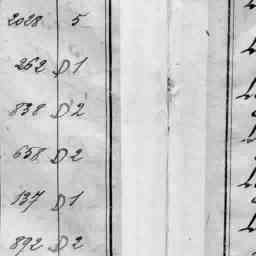 2028 5
262 D 1
838 D 2
658 D 2
137 D 1
892 D 2